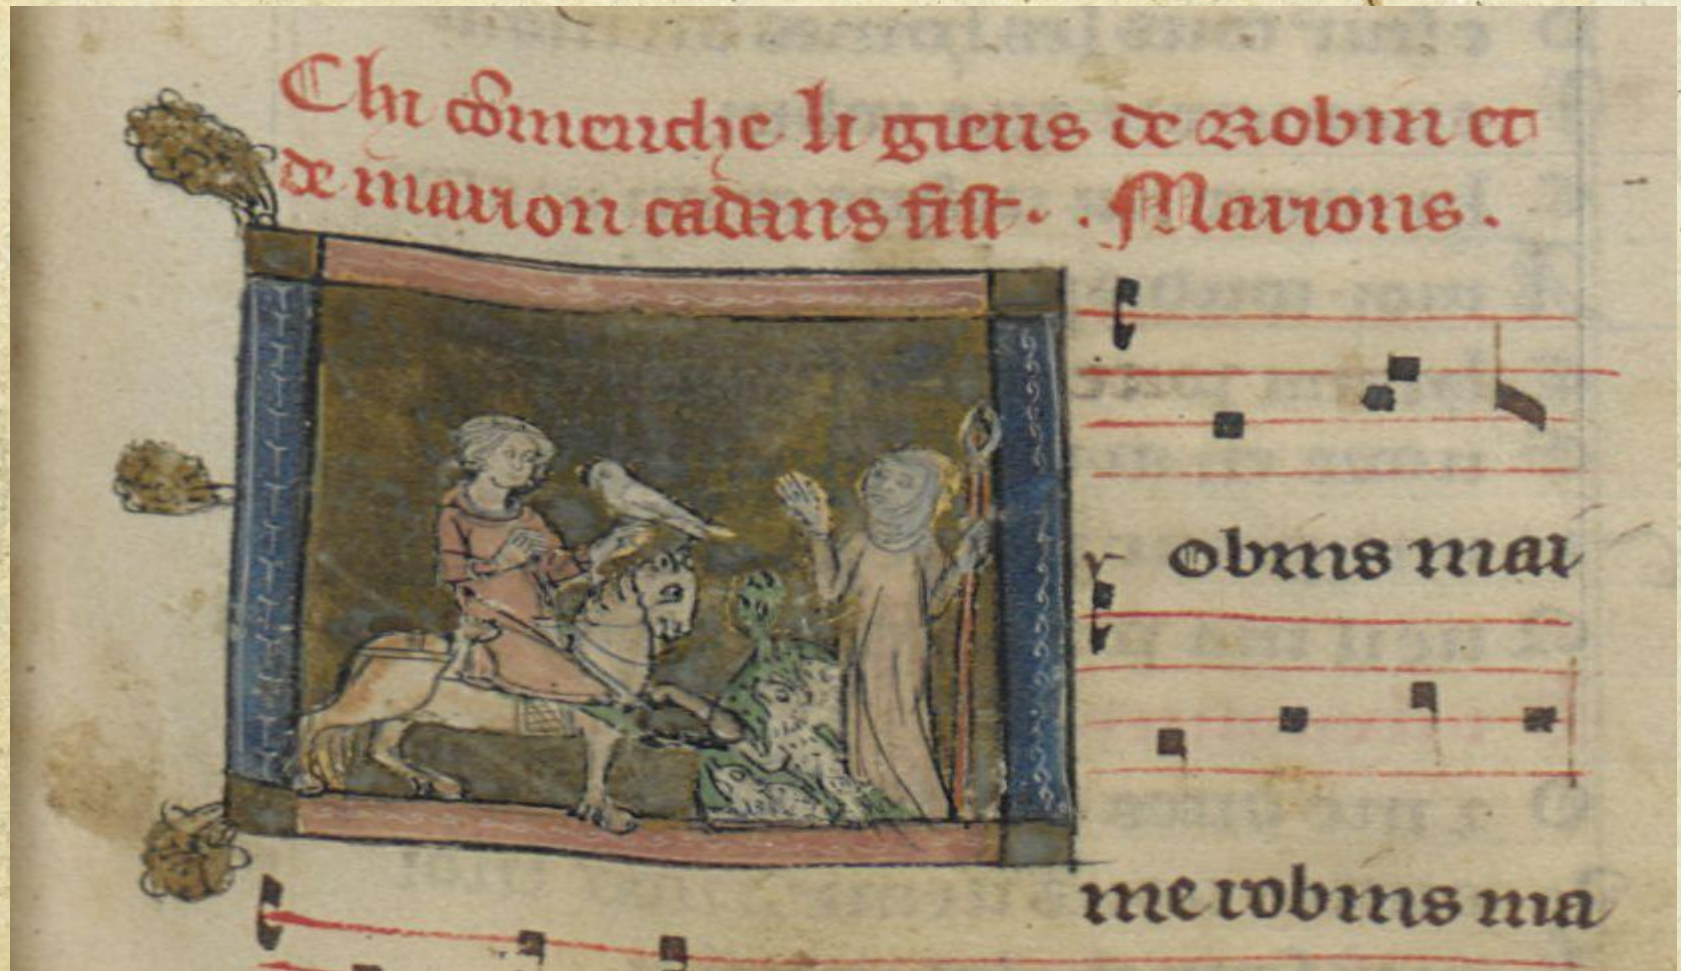 Chi cõmenche li gieus de Robin et
de marion cadans fist . . Marions .
r obins mai
me robins ma